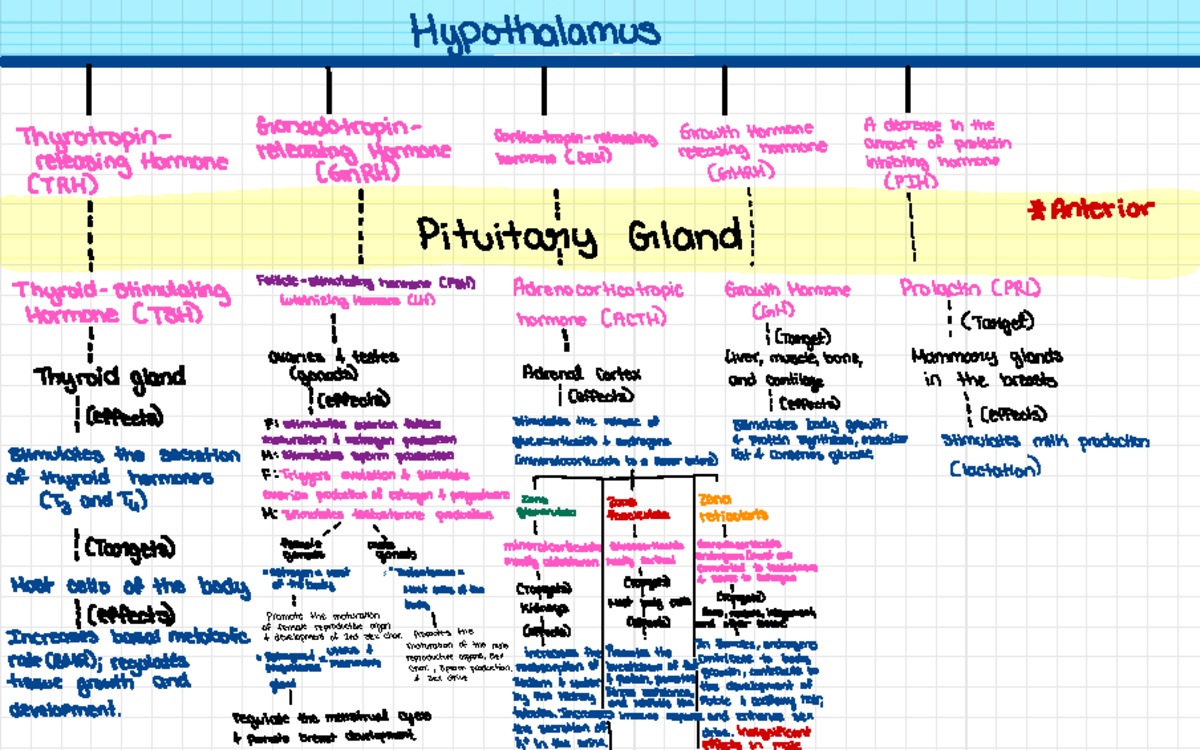 Hypothalamus
Thyrotropin-
releasing Hormone
(TRH)
Gonadotropin-
releasing Hormone
(GnRH)
Corticotropin-releasing
hormone (CRH)
Growth Hormone
releasing hormone
(GHRH)
A decrease in the
amount of prolactin
inhibiting hormone
(PIH)
Pituitary Gland
*Anterior
Thyroid-Stimulating
Hormone (TSH)
Thyroid gland
(effects)
Stimulates the secretion
of thyroid hormones
(T3 and T4)
(Targets)
Most cells of the body
(effects)
Increases basal metabolic
rate (BMR); regulates
tissue growth and
development.
Follicle-stimulating hormone (FSH)
Luteinizing Hormone (LH)
ovaries & testes
(gonads)
(effects)
F: stimulates ovarian follicle
maturation & estrogen production
M: Stimulates sperm production
F: Triggers ovulation & stimulates
ovarian production of estrogen & progesterone
M: Stimulates testosterone production
female
gonads
male
gonads
of the body
Most cells of the
body
Promote the maturation
of female reproductive organ
& development of 2nd sex char.
Promotes the
maturation of the male
reproductive organs, sex
char., sperm production,
& sex drive
gland
Regulate the menstrual cycle
& promote breast development
Adrenocorticotropic
hormone (ACTH)
Adrenal Cortex
(effects)
Stimulates the release of
glucocorticoids & androgens
(mineralocorticoids to a lesser extent)
zona
glomerulosa
mineralocorticoids
mostly aldosterone
(Targets)
Kidneys
(effects)
increases the
reabsorption of
sodium & water
by the kidney
tubules. Increases
the secretion of
K+ in the urine.
zona
fasciculata
glucocorticoids
mostly cortisol
(Targets)
Most body cells
(effects)
Promotes the
breakdown of fat
& protein, promotes
stress resistance,
immune response
zona
reticularis
(Targets)
In females, androgens
contribute to body
growth, contribute to
the development of
pubic & axillary hair,
and enhance sex
drive. insignificant
effects in male
Growth Hormone
(GH)
(Target)
Liver, muscle, bone,
and cartilage
(effects)
Stimulates body growth
& protein synthesis, mobilize
fat & conserves glucose
Prolactin (PRL)
(Target)
Mammary glands
in the breasts
(effects)
Stimulates milk production
(lactation)